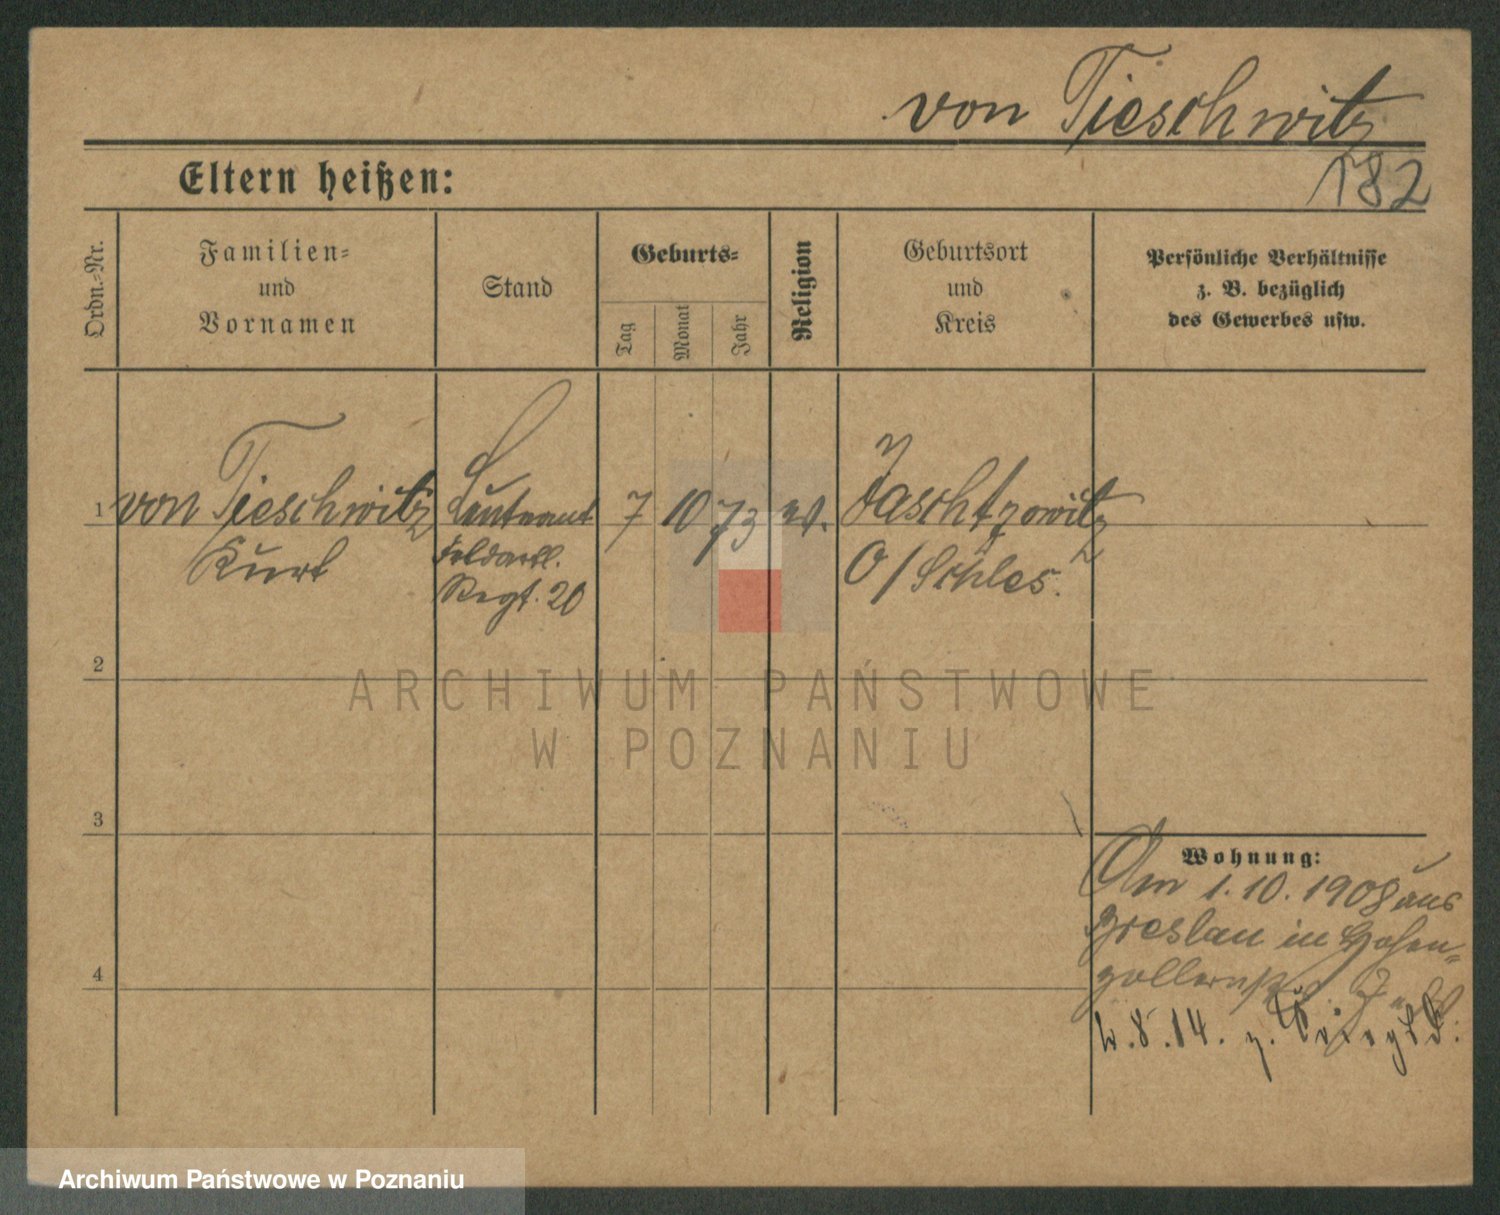 von Tieschwitz
182
Eltern heißen:
Ordn.-Nr.
Familien-
und
Vornamen
Stand
Geburts-
Tag
Monat
Jahr
Religion
Geburtsort
und
Kreis
Persönliche Verhältnisse
z. B. bezüglich
des Gewerbes usw.
1 von Tieschwitz Leutnant 7 10 73 ev. Jaschtzowitz
Kurt Feldartl. O/Schles.
Regt. 20
2
ARCHIWUM PAŃSTWOWE
W POZNANIU
3
Wohnung:
Am 1.10.1908 aus
Breslau in Hohen-
4 zollernstr.
2.8.14. z.
Archiwum Państwowe w Poznaniu